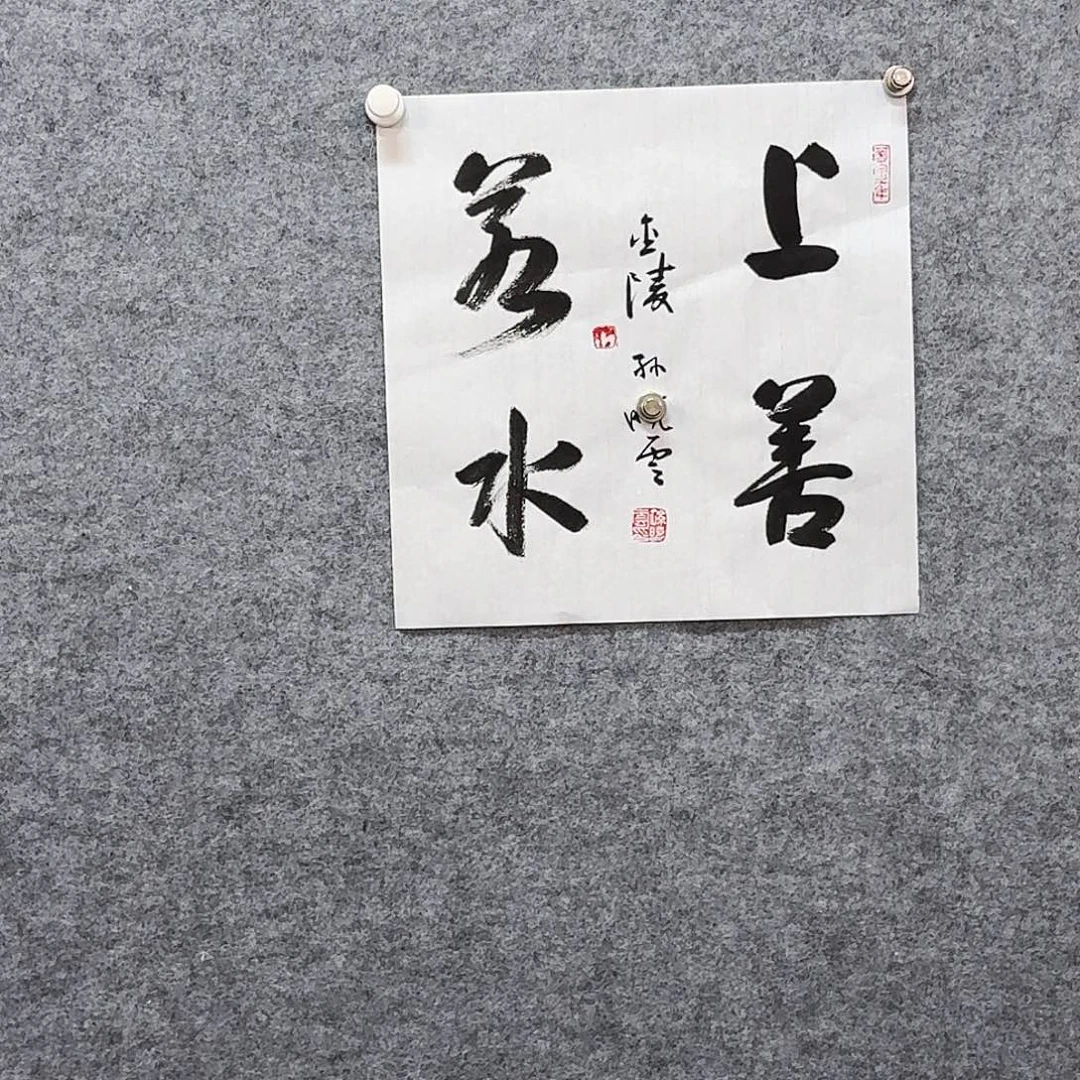 上善
若水
金陵 孙晓云